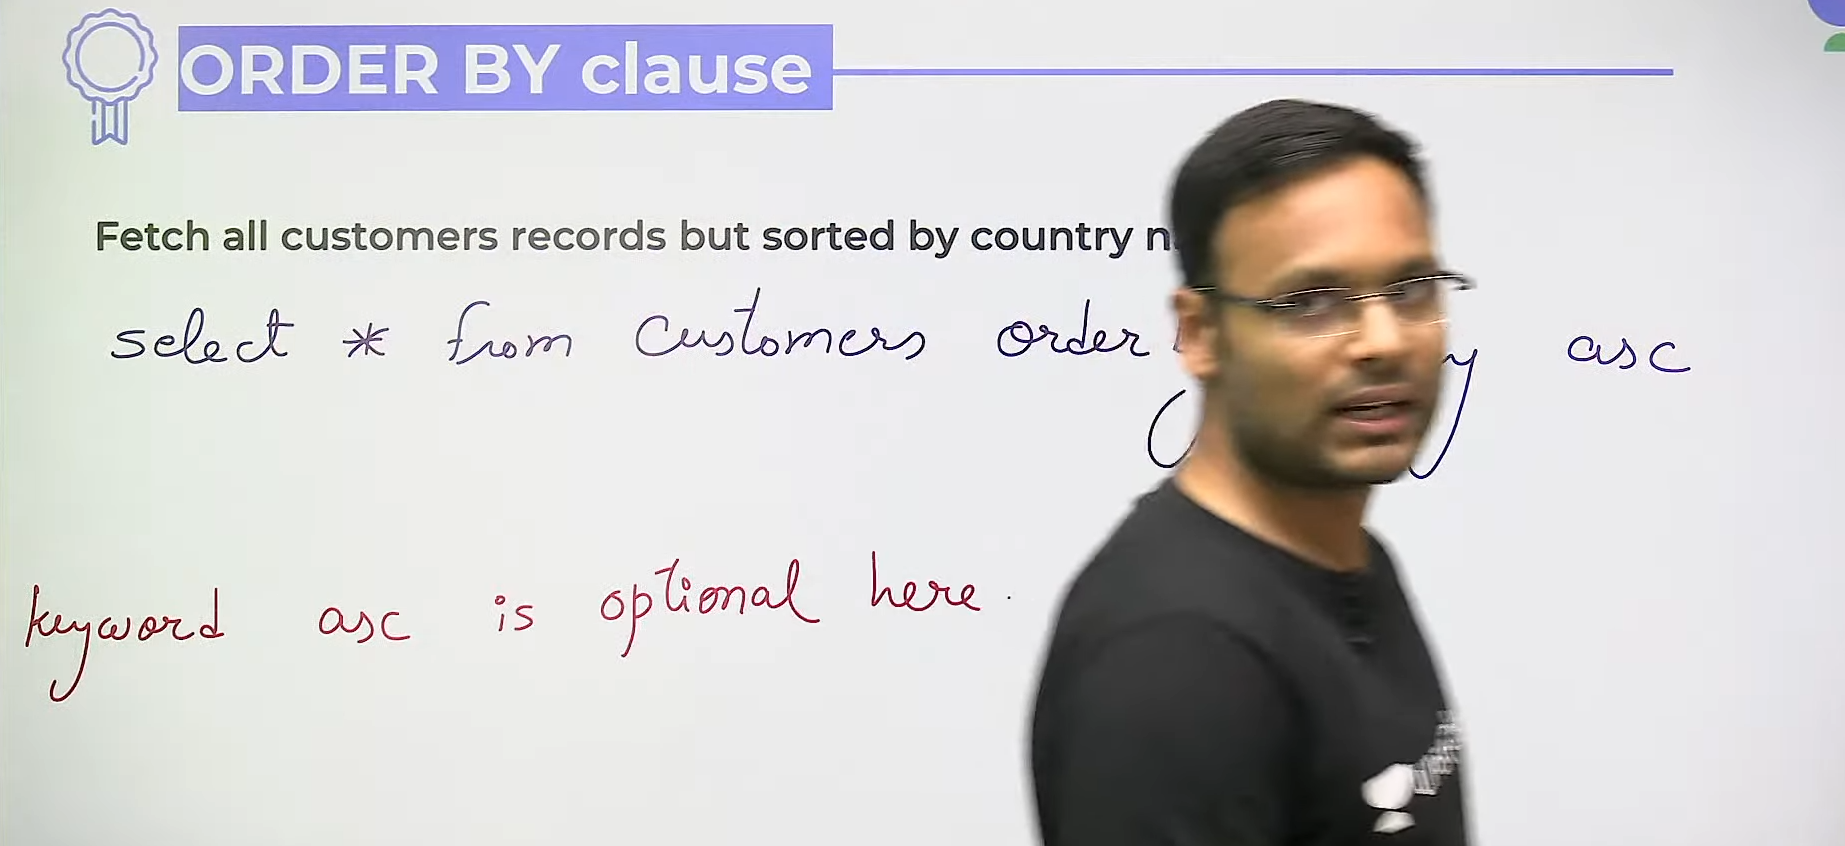 ORDER BY clause
Fetch all customers records but sorted by country
select * from Customers order asc
keyword asc is optional here.